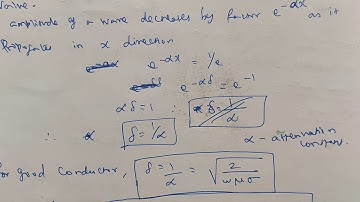 amplitude of a wave decreases by factor e^-αx as it
Propagates in x direction
e^-αx = 1/e
e^-αδ = e^-1
αδ = 1 ∴ δ = 1/α
∴ δ = 1/α
α - attenuation constant.
for good Conductor, δ = 1/α = √(2/ωμσ)